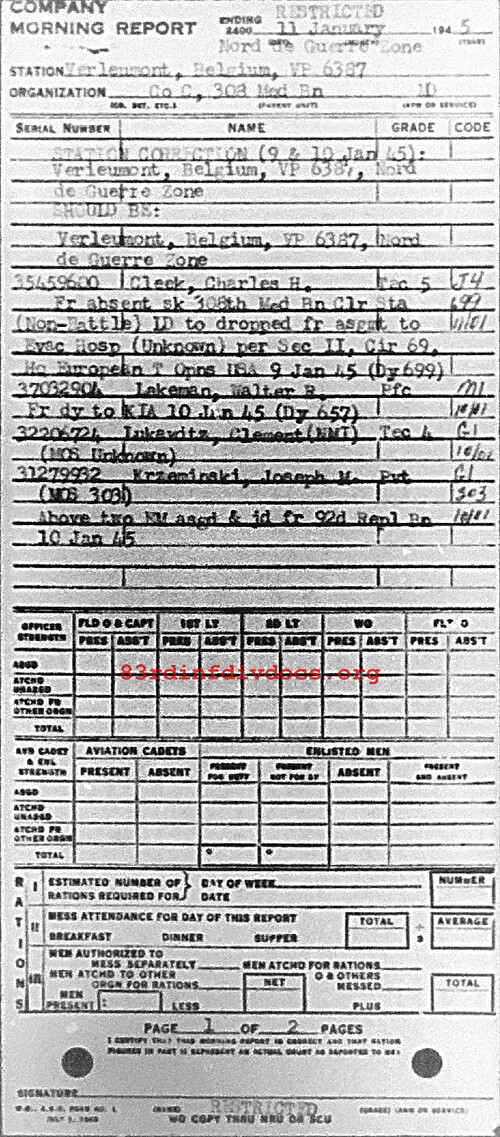 COMPANY RESTRICTED
MORNING REPORT ENDING 2400 11 January 1945
Nord de Guerre Zone
STATION Verleumont, Belgium, VP 6387
ORGANIZATION Co C, 308 Med Bn MD
SERIAL NUMBER NAME GRADE CODE
STATION CORRECTION (9 & 10 Jan 45):
Verieumont, Belgium, VP 6387, Nord
de Guerre Zone
SHOULD BE:
Verleumont, Belgium, VP 6387, Nord
de Guerre Zone
35459600 Cleck, Charles H. Tec 5 J4
Fr absent sk 308th Med Bn Clr Sta 699
(Non-Battle) LD to dropped fr asgmt to
Evac Hosp (Unknown) per Sec II, Cir 69,
Hq European T Opns USA 9 Jan 45 (Dy 699)
37032904 Lakeman, Walter R. Pfc M1
Fr dy to KIA 10 Jan 45 (Dy 657) 10/01
32206724 Lukawitz, Clement (NMI) Tec 4 G1
(MOS Unknown) 10/01
31279932 Krzeminski, Joseph M. Pvt G1
(MOS 303) 303
Above two EM asgd & jd fr 92d Repl Bn 10/01
10 Jan 45
OFFICER STRENGTH FLD O & CAPT 1ST LT 2D LT WO FLT O
PRES ABS'T PRES ABS'T PRES ABS'T PRES ABS'T PRES ABS'T
ASGD
ATCHD UNASGD
ATCHD FR OTHER ORGN
TOTAL
83rdinfdivdocs.org
AVN CADET & ENL STRENGTH AVIATION CADETS ENLISTED MEN
PRESENT ABSENT PRESENT FOR DUTY PRESENT NOT FOR DY ABSENT PRESENT AND ABSENT
ASGD
ATCHD UNASGD
ATCHD FR OTHER ORGN
TOTAL
RATIONS
I ESTIMATED NUMBER OF DAY OF WEEK NUMBER
RATIONS REQUIRED FOR DATE
II MESS ATTENDANCE FOR DAY OF THIS REPORT TOTAL ÷ 3 AVERAGE
BREAKFAST DINNER SUPPER
III MEN AUTHORIZED TO MESS SEPARATELY MEN ATCHD FOR RATIONS
MEN ATCHD TO OTHER ORGN FOR RATIONS NET O & OTHERS MESSED TOTAL
MEN PRESENT: LESS PLUS
PAGE 1 OF 2 PAGES
I CERTIFY THAT THIS MORNING REPORT IS CORRECT AND THAT RATION
FIGURES IN PART III REPRESENT AN ACTUAL COUNT AS REPORTED TO ME:
SIGNATURE
W.D., A.G.O. FORM NO. 1 (NAME) RESTRICTED (GRADE) (ARM OR SERVICE)
JULY 1, 1943 WD COPY THRU MRU OR SCU